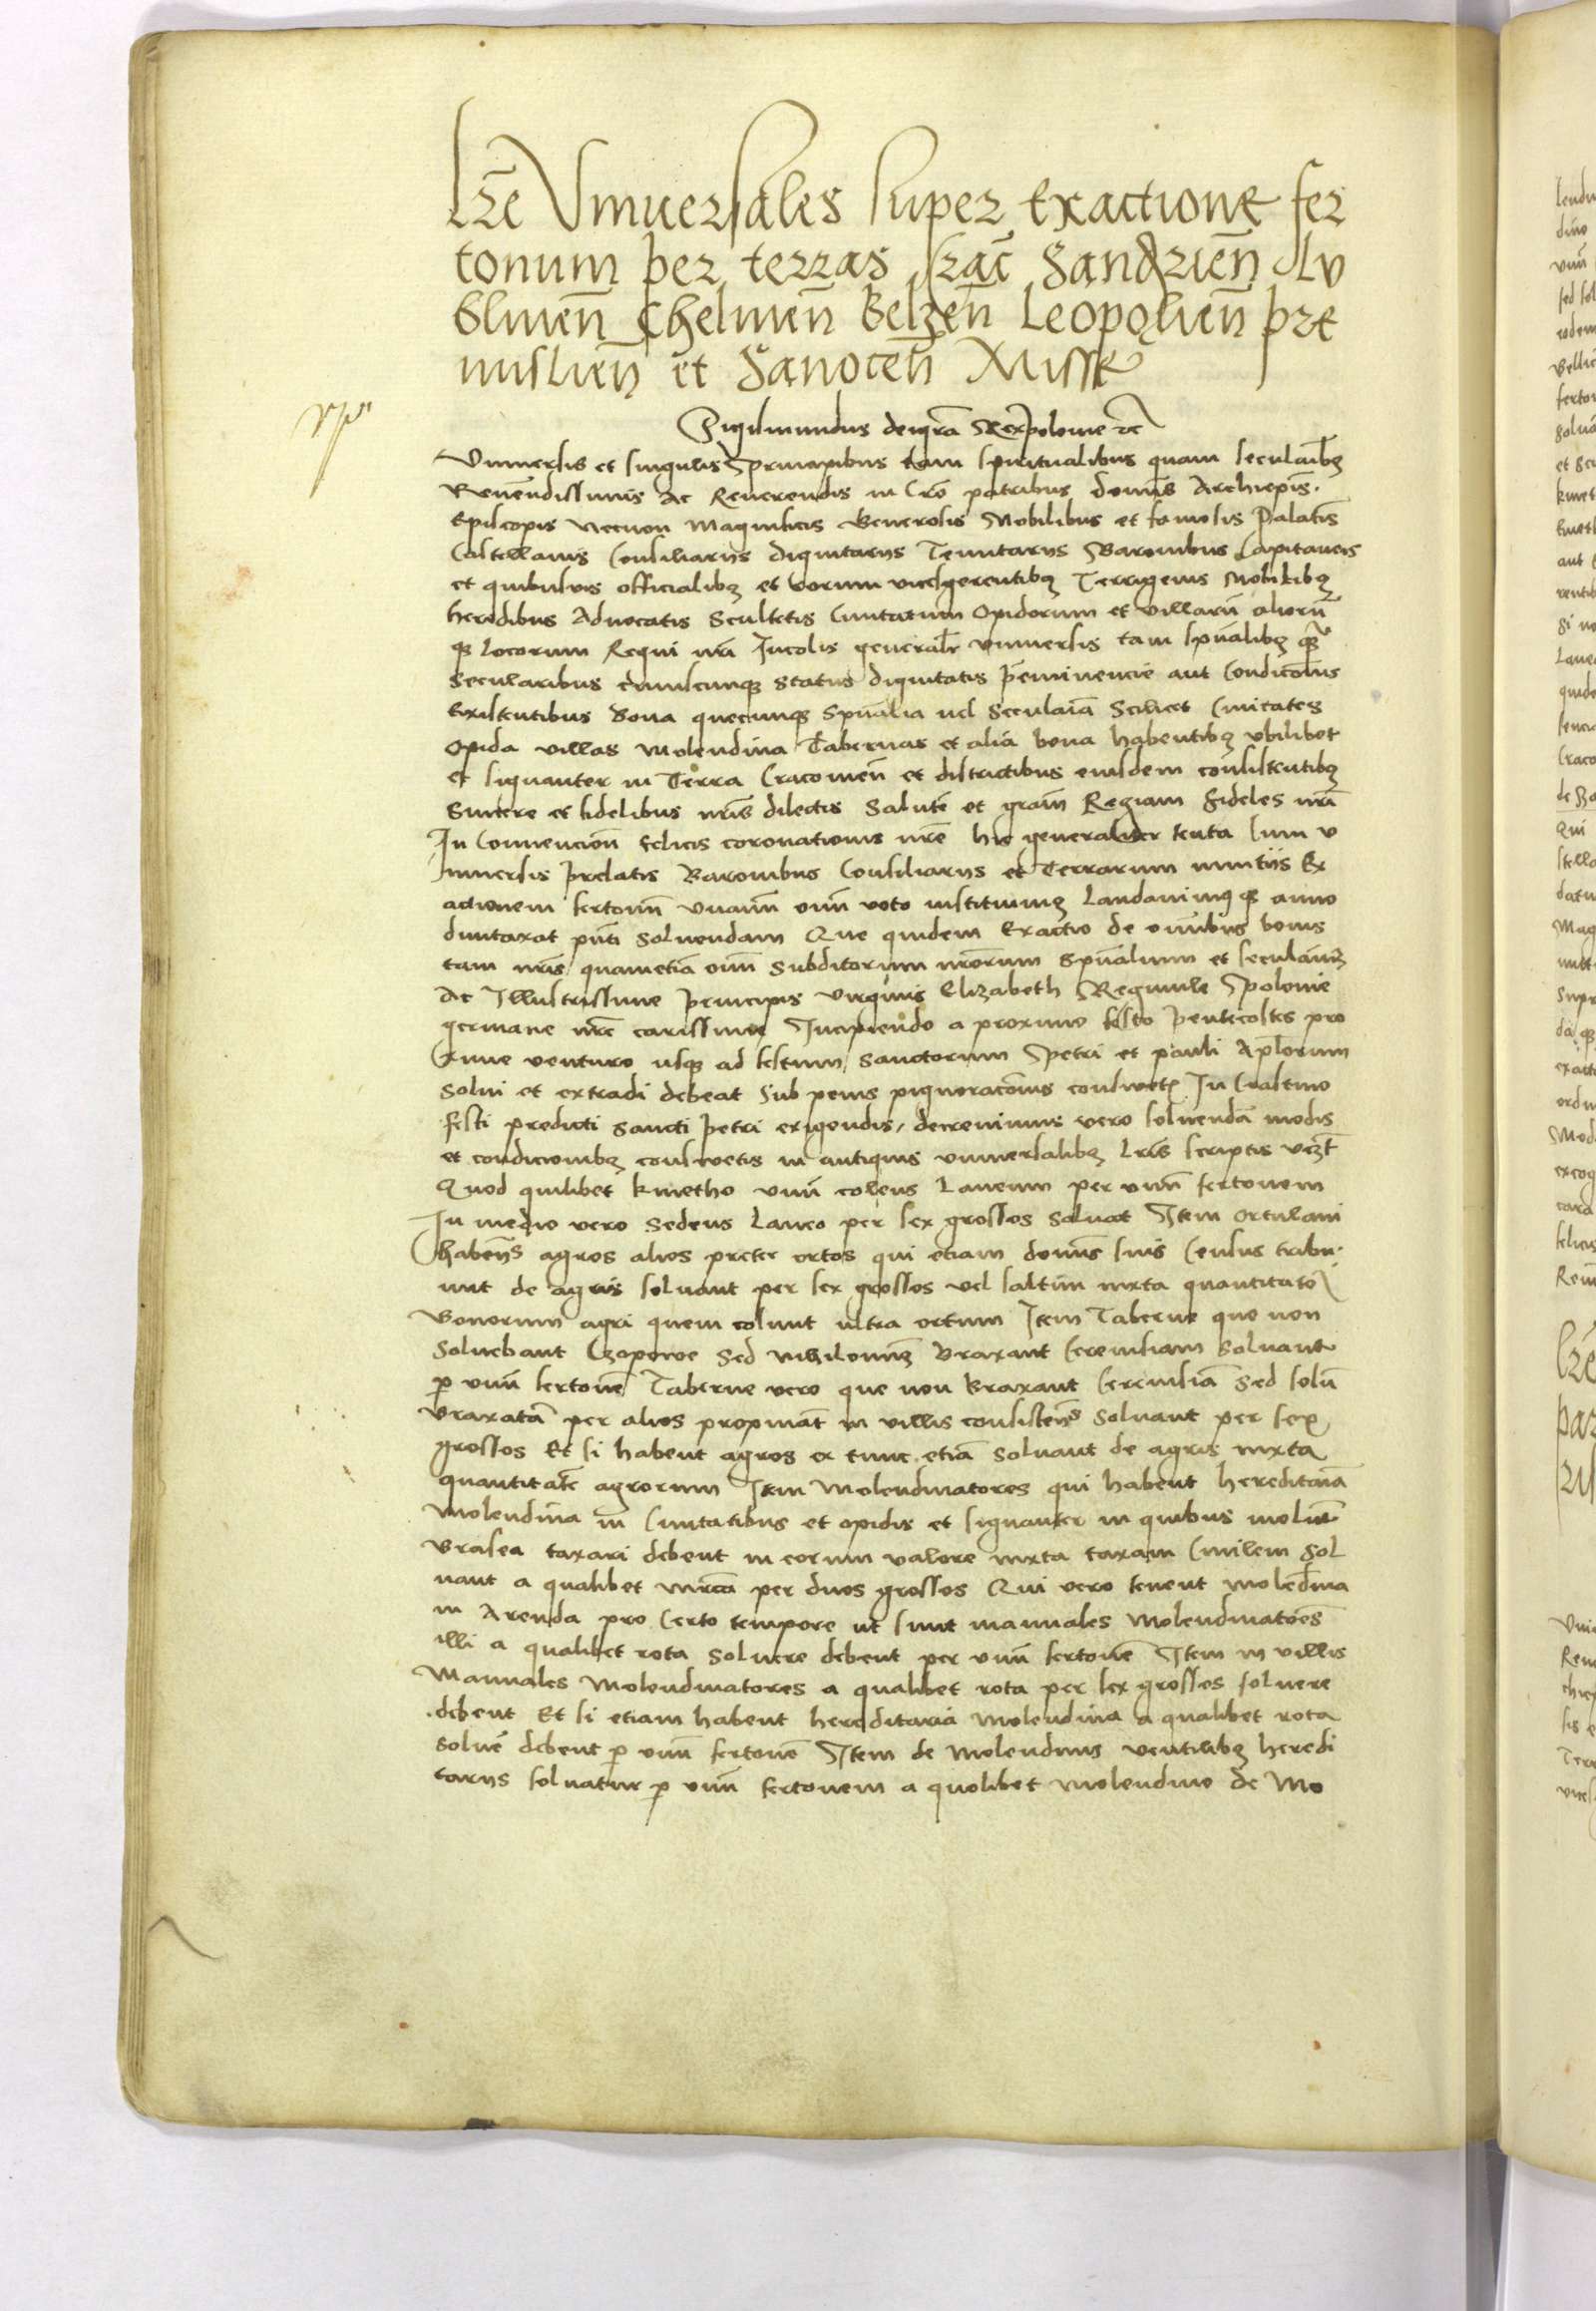 Lr̄e Vniuersales super Exactione fer
tonum per terras Crac̄ Sandzien̄ Lu
blinen̄ Chelmen̄ Belzen̄ Leopolien̄ pre
mislien̄ et Sanocen̄ Misse
Sigismundus dei gr̄a Rex polonie ⁊c̄
Vniuersis et singulis principibus tam spiritualibus quam secularibꝫ
Reuerendissimis Ac Reuerendis in Cr̄o patribus domīs Archiepīs
Episcopis Necnon Magnificis Generosis Nobilibus et famosis Palatīs
Castellanis Consiliarijs dignitarijs Tenutarijs Baronibus Capitaneis
et quibusuis officialibꝫ et eorum vicesgerentibꝫ Terrigenis Nobilibꝫ
heredibus Aduocatis Scultetis Ciuitatum Opidorum et villarū aliorū
qꝫ locorum Regni nr̄i Incolis generalr̄ vniuersis tam sp̄ualibꝫ qꝫ
Secularibus cuiuscunqꝫ status dignitatis p̄eminencie aut Condicōnis
Existentibus Bona quecunqꝫ Sp̄ualia uel Seculaīa Scilicet Ciuitates
Opida villas Molendina Tabernas et alia bona habentibꝫ vbilibet
et signanter in Terra Cracouien̄ et districtibus eiusdem consistentibꝫ
Sincere et fidelibus nr̄is dilectis Salutē et grām Regiam Fideles nr̄i
In Conuencion̄ felicis coronationis nr̄e hic generaliter tenta Cum v
niuersis prelatis Baronibus Consiliarijs et Terrarum nuntiis Ex
actionem fertonū vnānī oīm voto instituimꝫ Laudauimꝫ qꝫ anno
duntaxat pn̄ti Soluendam Que quidem Exactio de oīnibus bonis
tam nr̄is quam etiā oīm Subditorum nr̄orum Sp̄ualium et seculariuꝫ
Ac Illustrissime principis virginis Elizabeth Reginule Polonie
germane nr̄e carissime Incipiendo a proximo festo pentecostes pro
xime venturo usqꝫ ad festum Sanctorum Petri et pauli Ap̄lorum
Solui et extradi debeat Sub penis pignoracōnis consuetꝭ In Crastino
festi predicti Sancti petri exigendis, decreuimus vero soluendā modis
et condicionibꝫ consuetis in antiquis vniuersalibꝫ Lr̄is scriptis vꝫt
Quod quilibet kmetho vnū colens Laneum per vnū fertonem
In medio vero Sedens Laneo per sex grossos Soluat Item Ortulani
habenn̄s agros alios preter ortos qui etiam domīs suis Census tribu
unt de agris soluant per sex grossos vel saltim iuxta quantitatē
Bonorum agri quem colunt ultra ortum Item Taberne que non
Soluebant Czopowe Sed nihilominꝫ Braxant Ceruisiam Soluant
ꝑ vnū fertonē Taberne vero que non Braxant Ceruisiā Sed solū
Braxatā per alios propināt in villis consisten̄s Soluant per sex
grossos Et si habent agros ex tunc etiā Soluant de agris iuxta
quantitatē agrorum Item Molendinatores qui habent hereditaīa
Molendina in Ciuitatibus et opidis et signanter in quibus molūt
Brasea taxari debent in eorum valore iuxta taxam Ciuilem Sol
uant a qualibet mrca per duos grossos Qui vero tenent moledina
in Arenda pro Certo tempore ut sunt manuales Molendinatoēs
illi a qualibet rota Soluere debent per vnū fertonē Item in villis
Manuales Molendinatores a qualibet rota per sex grossos soluere
debent Et si etiam habent hereditaria Molendina a qualibet rota
Soluē debent ꝑ vnū fertonē Item de Molendinis ventilibꝫ heredi
tarijs soluatur ꝑ vnū fertonem a quolibet Molendino de Mo